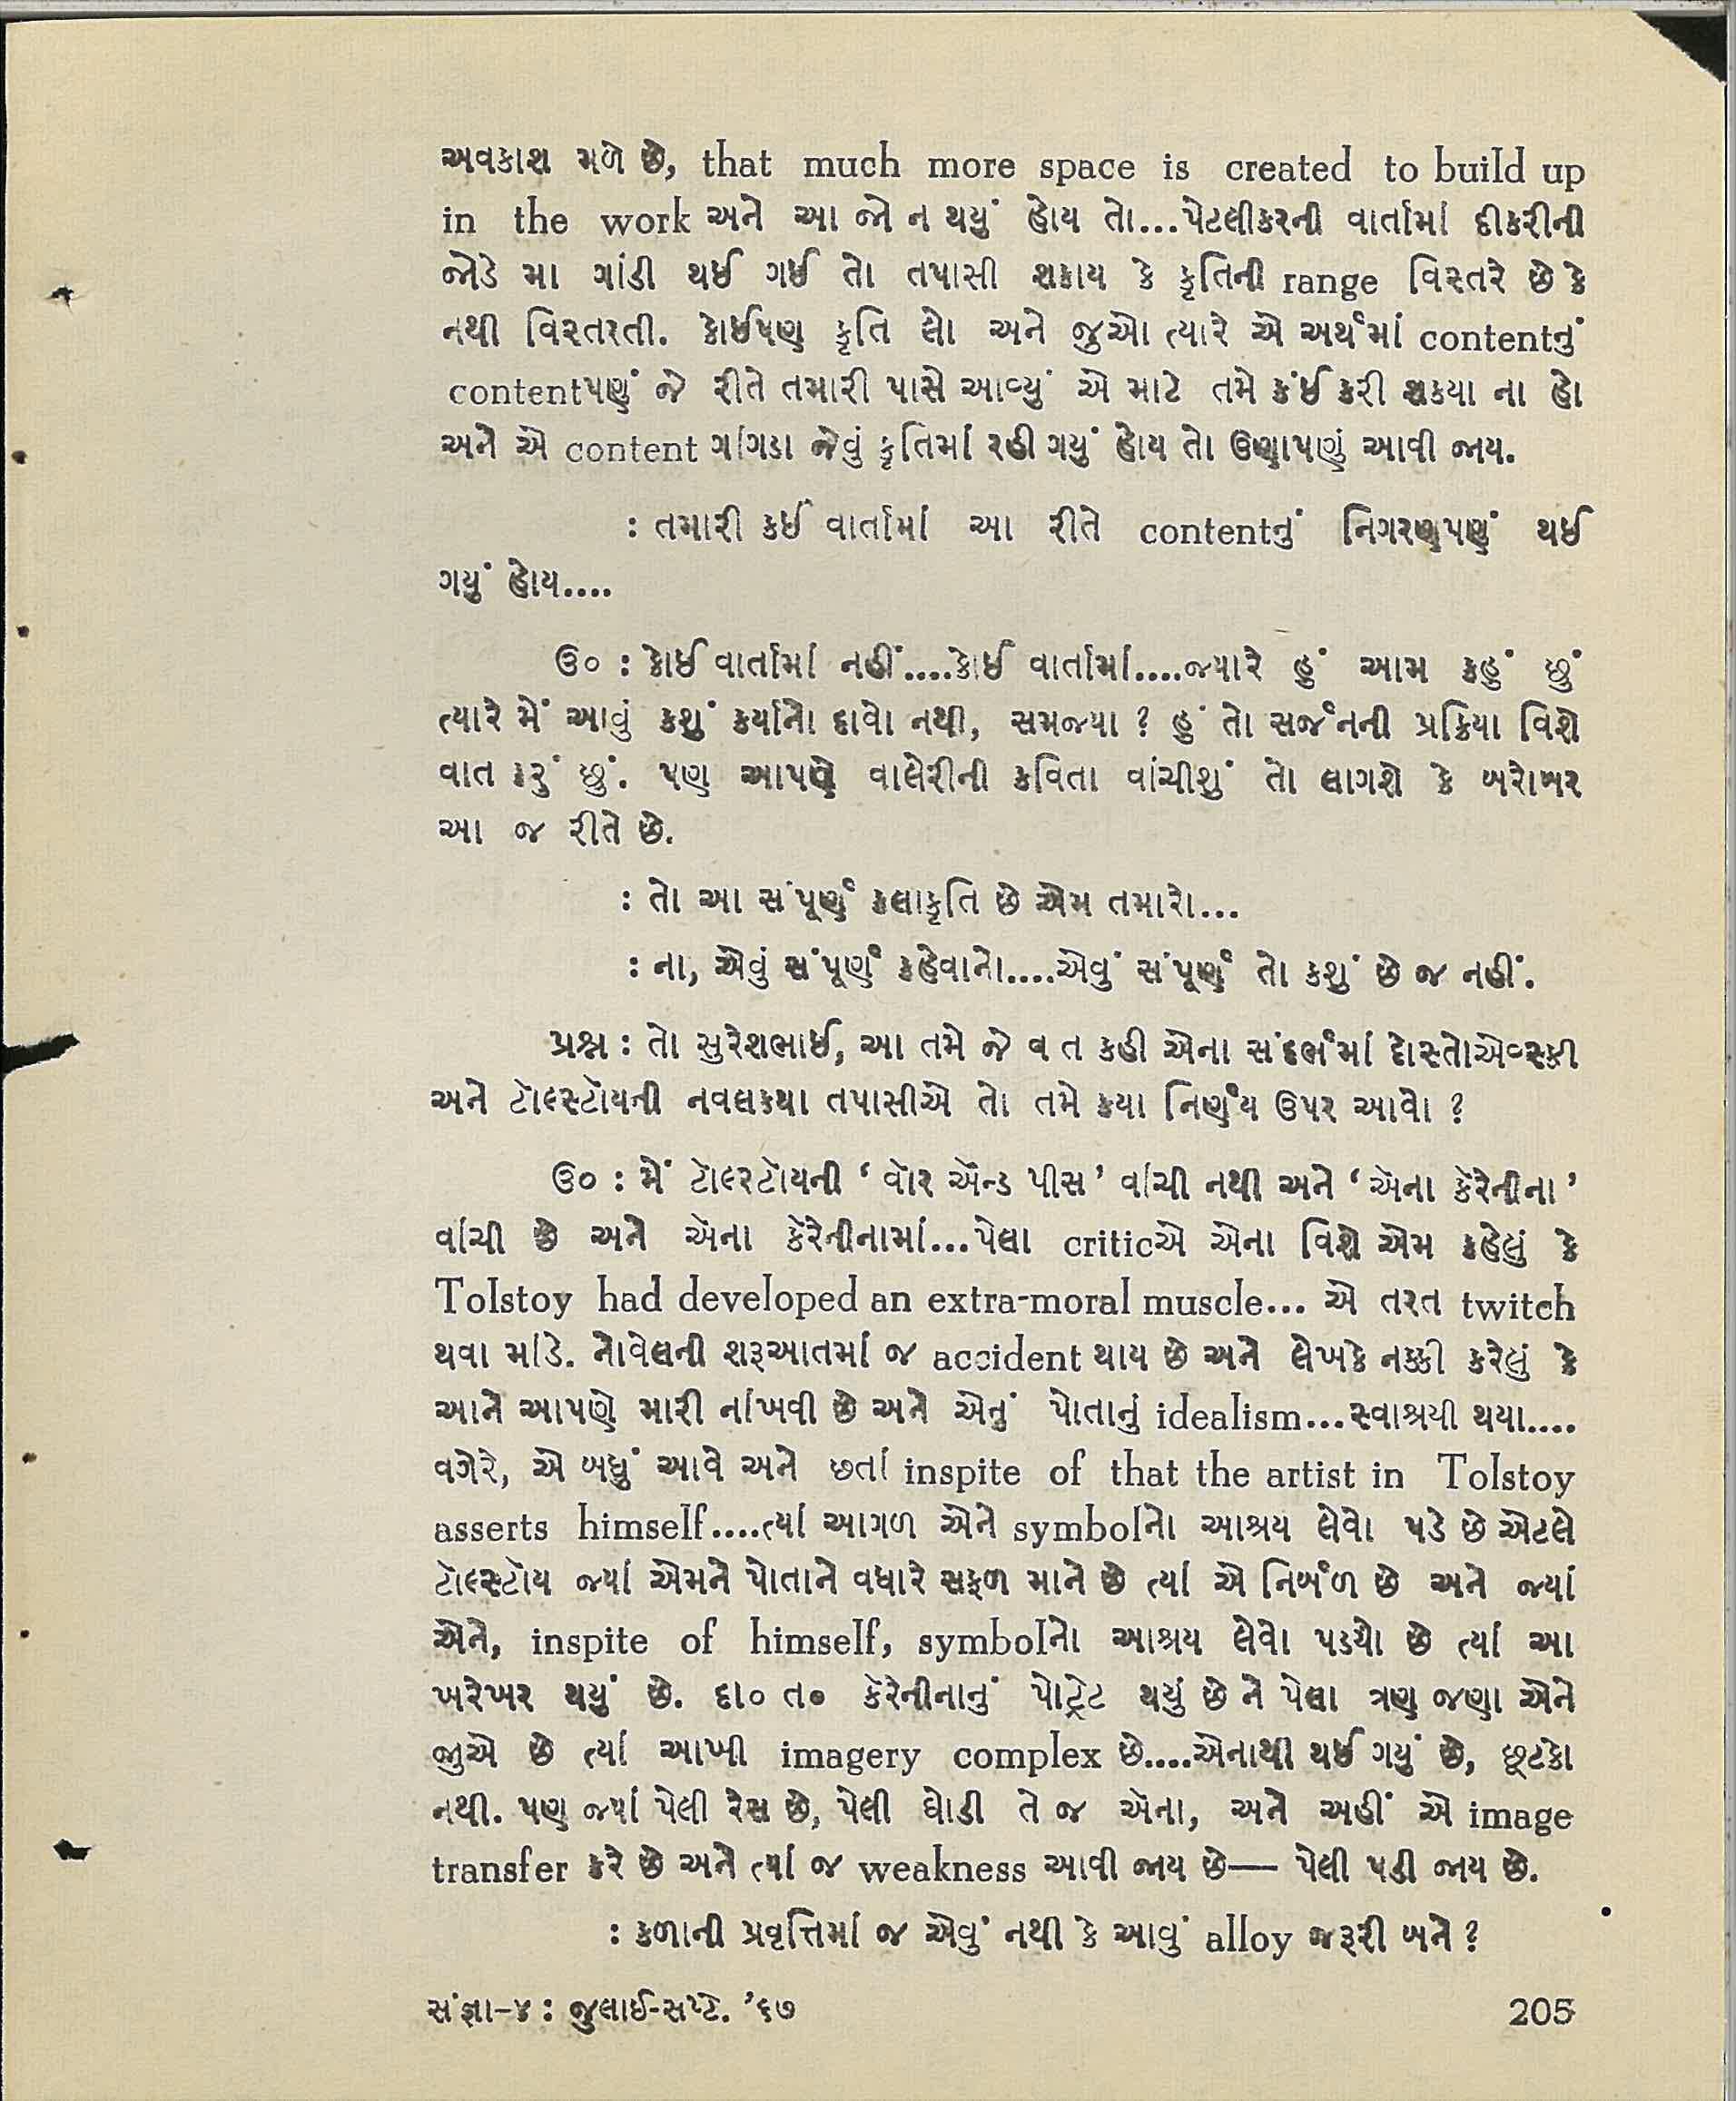 અવકાશ મળે છે, that much more space is created to build up
in the work અને આ જો ન થયું હોય તો...પેટલીકરની વાર્તામાં દીકરીની
જોડે મા ગાંડી થઈ ગઈ તો તપાસી શકાય કે કૃતિની range વિસ્તરે છે કે
નથી વિસ્તરતી. કોઈપણ કૃતિ લો અને જુઓ ત્યારે એ અર્થમાં contentનું
contentપણું જે રીતે તમારી પાસે આવ્યું એ માટે તમે કંઈ કરી શકયા ના હો
અને એ content ગાંગડા જેવું કૃતિમાં રહી ગયું હોય તો ઉણાપણું આવી જાય.
: તમારી કઈ વાર્તામાં આ રીતે contentનું નિગરણપણું થઈ
ગયું હોય....
ઉ૦ : કોઈ વાર્તામાં નહીં....કોઈ વાર્તામાં....જ્યારે હું આમ કહું છું
ત્યારે મેં આવું કશું કર્યાનો દાવો નથી, સમજયા ? હું તો સર્જનની પ્રક્રિયા વિશે
વાત કરું છું. પણ આપણે વાલેરીની કવિતા વાંચીશું તો લાગશે કે બરોબર
આ જ રીતે છે.
: તો આ સંપૂર્ણ કલાકૃતિ છે એમ તમારો...
: ના, એવું સંપૂર્ણ કહેવાનો....એવું સંપૂર્ણ તો કશું છે જ નહીં.
પ્રશ્ન : તો સુરેશભાઈ, આ તમે જે વ ત કહી એના સંદર્ભમાં દોસ્તોએવ્સ્કી
અને ટૉલ્સ્ટૉયની નવલકથા તપાસીએ તો તમે કયા નિર્ણય ઉપર આવો ?
ઉ૦ : મેં ટૉલ્સ્ટૉયની ‘ વૉર ઍન્ડ પીસ ’ વાંચી નથી અને ‘ ઍના કૅરેનીના ’
વાંચી છે અને ઍના કૅરેનીનામાં...પેલા criticએ એના વિશે એમ કહેલું કે
Tolstoy had developed an extra-moral muscle... એ તરત twitch
થવા માંડે. નોવેલની શરૂઆતમાં જ accident થાય છે અને લેખકે નક્કી કરેલું કે
આને આપણે મારી નાંખવી છે અને એનું પોતાનું idealism...સ્વાશ્રયી થયા....
વગેરે, એ બધું આવે અને છતાં inspite of that the artist in Tolstoy
asserts himself....ત્યાં આગળ એને symbolનો આશ્રય લેવો પડે છે એટલે
ટૉલ્સ્ટૉય જ્યાં એમને પોતાને વધારે સફળ માને છે ત્યાં એ નિર્બળ છે અને જ્યાં
એને, inspite of himself, symbolનો આશ્રય લેવો પડયો છે ત્યાં આ
ખરેખર થયું છે. દા૦ ત૦ કૅરેનીનાનું પોટ્રેટ થયું છે ને પેલા ત્રણ જણા એને
જુએ છે ત્યાં આખી imagery complex છે....એનાથી થઈ ગયું છે, છૂટકો
નથી. પણ જ્યાં પેલી રેસ છે, પેલી ઘોડી તે જ ઍના, અને અહીં એ image
transfer કરે છે અને ત્યાં જ weakness આવી જાય છે— પેલી પડી જાય છે.
: કળાની પ્રવૃત્તિમાં જ એવું નથી કે આવું alloy જરૂરી બને ?
સંજ્ઞા–૪ : જુલાઈ-સપ્ટે. ’૬૭ 205